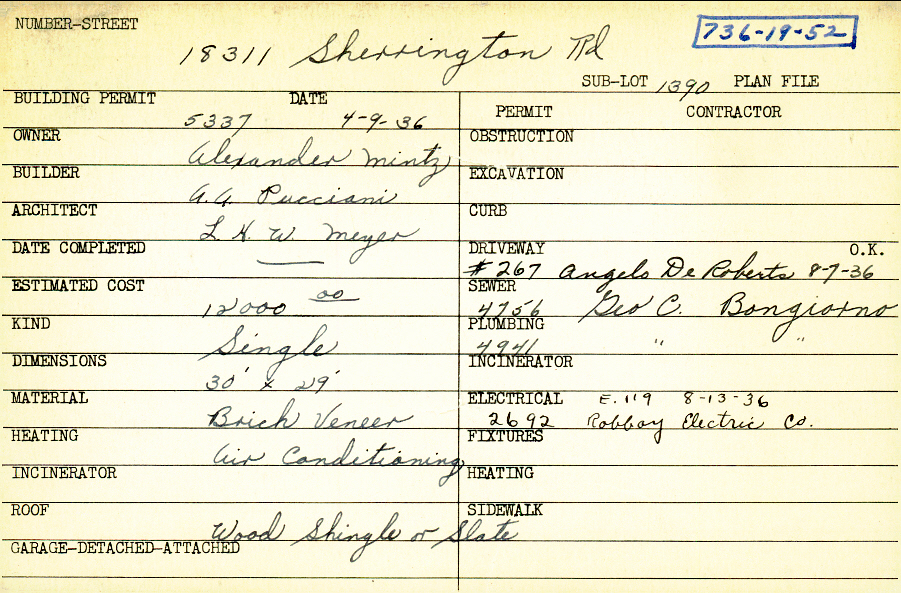 NUMBER-STREET
18311 Sherrington Rd
736-19-52
SUB-LOT 1390 PLAN FILE
BUILDING PERMIT DATE
5337 4-9-36
OWNER
Alexander Mintz
BUILDER
A.A. Pucciani
ARCHITECT
L. H. W. Meyer
DATE COMPLETED
—
ESTIMATED COST
12000 00
KIND
Single
DIMENSIONS
30' x 29'
MATERIAL
Brick Veneer
HEATING
Air Conditioning
INCINERATOR
ROOF
Wood Shingle or Slate
GARAGE-DETACHED-ATTACHED
PERMIT CONTRACTOR
OBSTRUCTION
EXCAVATION
CURB
DRIVEWAY O.K.
# 267 Angelo De Roberts 8-7-36
SEWER
4756 Geo C. Bongiorno
PLUMBING
4941 " "
INCINERATOR
ELECTRICAL E.119 8-13-36
2692 Robboy Electric Co.
FIXTURES
HEATING
SIDEWALK